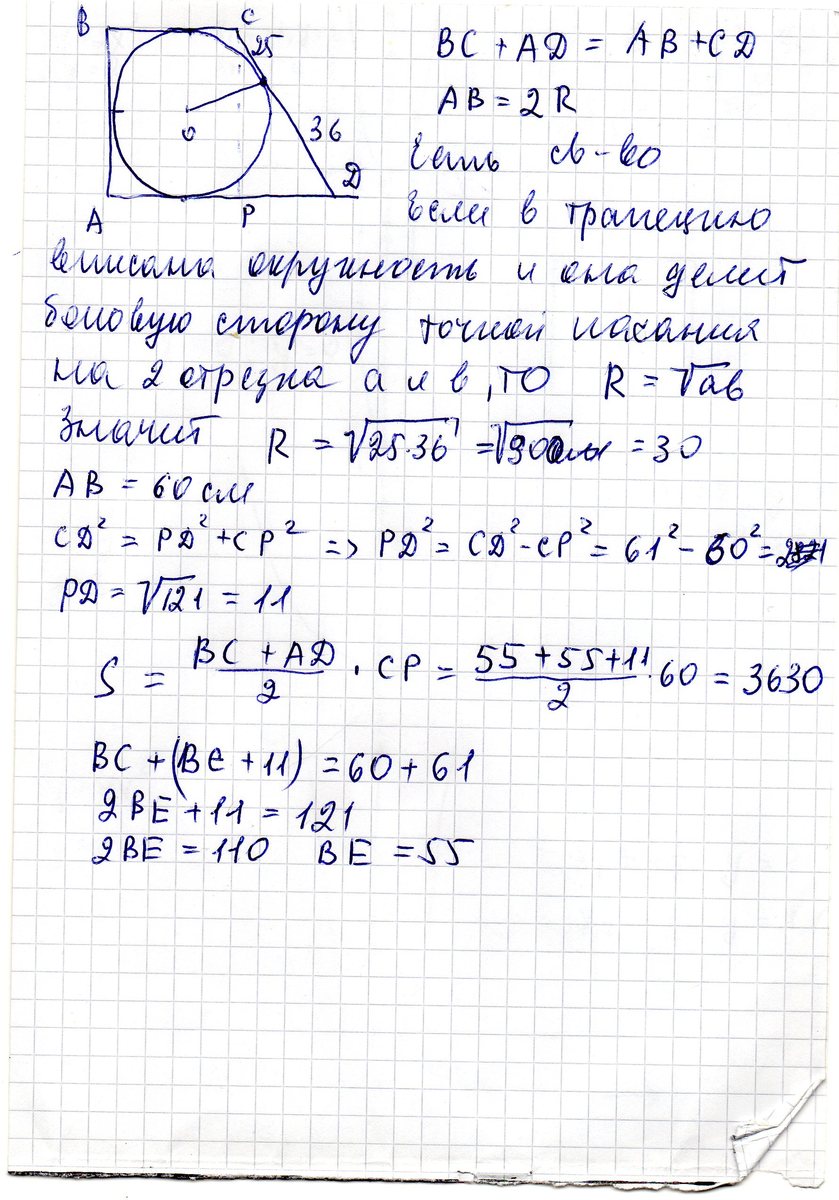 B C
25
O
36
D
A P
BC + AD = AB + CD
AB = 2R
Есть св-во
Если в трапецию
вписана окружность и она делит
боковую сторону точкой касания
на 2 отрезка а и в, то R = √ав
Значит R = √25·36 = √900 = 30
AB = 60 см
CD² = PD² + CP² => PD² = CD² - CP² = 61² - 60² =
PD = √121 = 11
S = BC + AD / 2 · CP = 55 + 55 + 11 / 2 · 60 = 3630
BC + (BC + 11) = 60 + 61
2BE + 11 = 121
2BE = 110 BE = 55